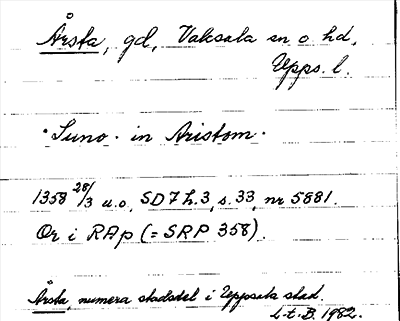 Årsta, gd, Vaksala sn o hd,
Upps. l.
· Suno · in Aristom ·
1358 28/3 u.o, SD 7 h.3, s. 33, nr 5881.
Or i RAp (= SRP 358).
Årsta, numera stadsdel i Uppsala stad.
L-t. B. 1982.